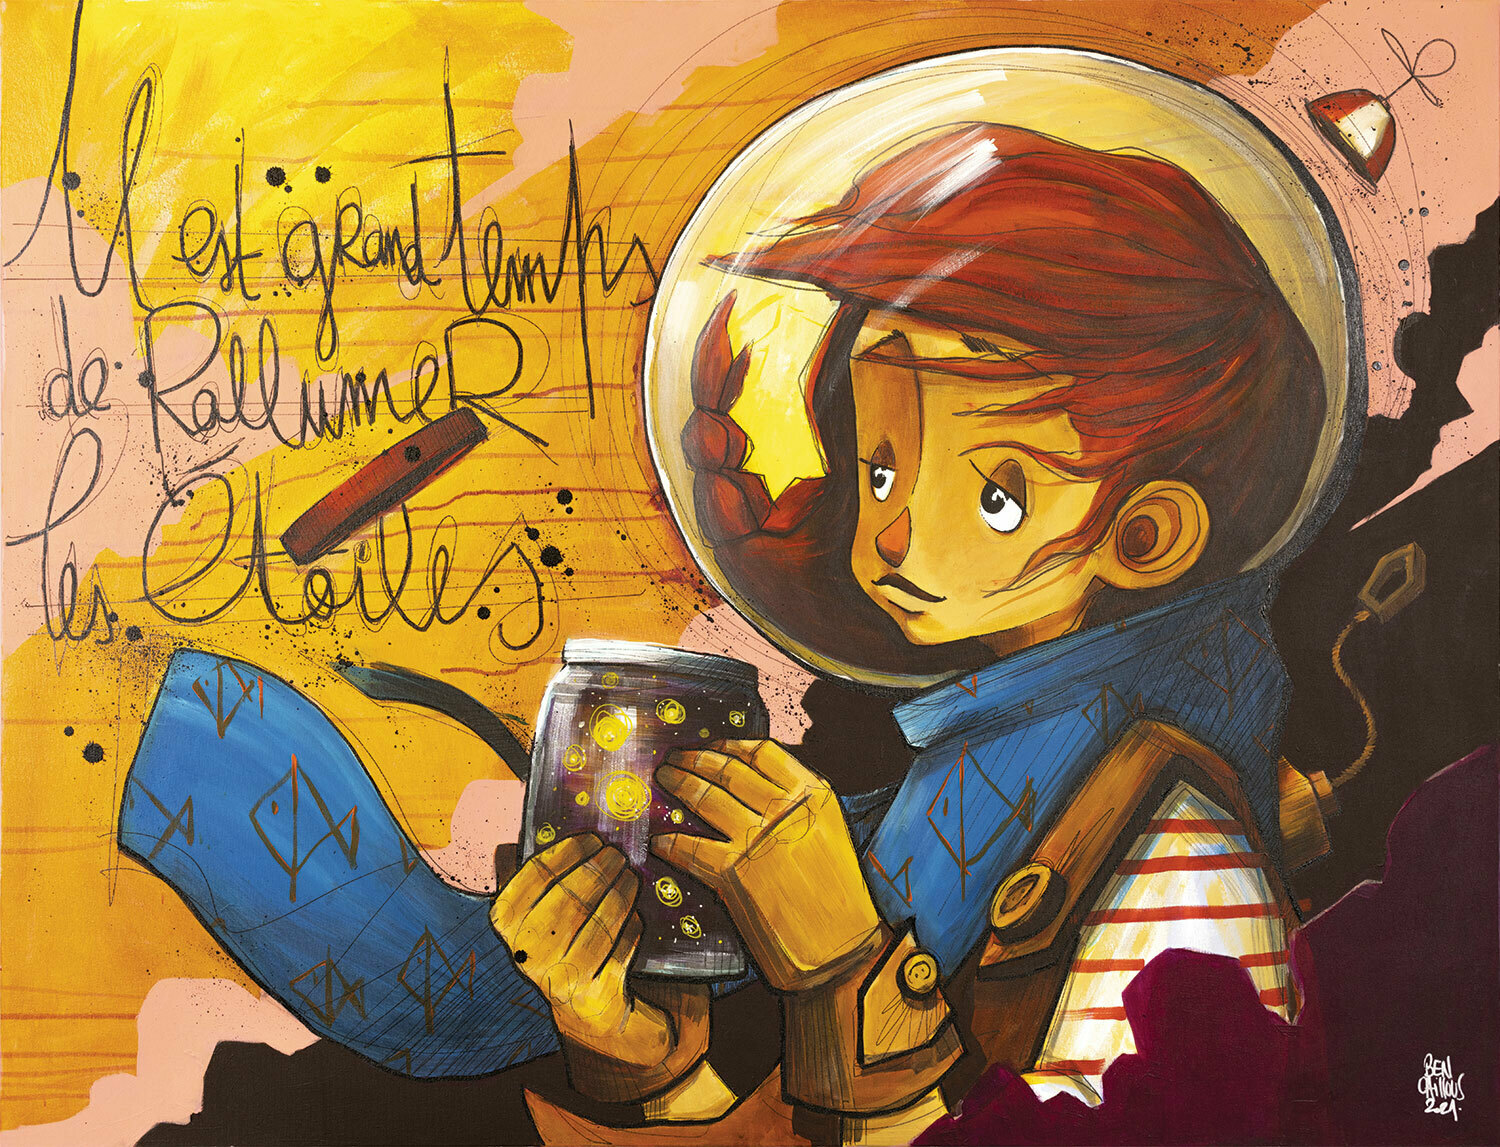 Il est grand temps
de RallumeR
les Étoiles
BEN
CAILLOUS
2021.